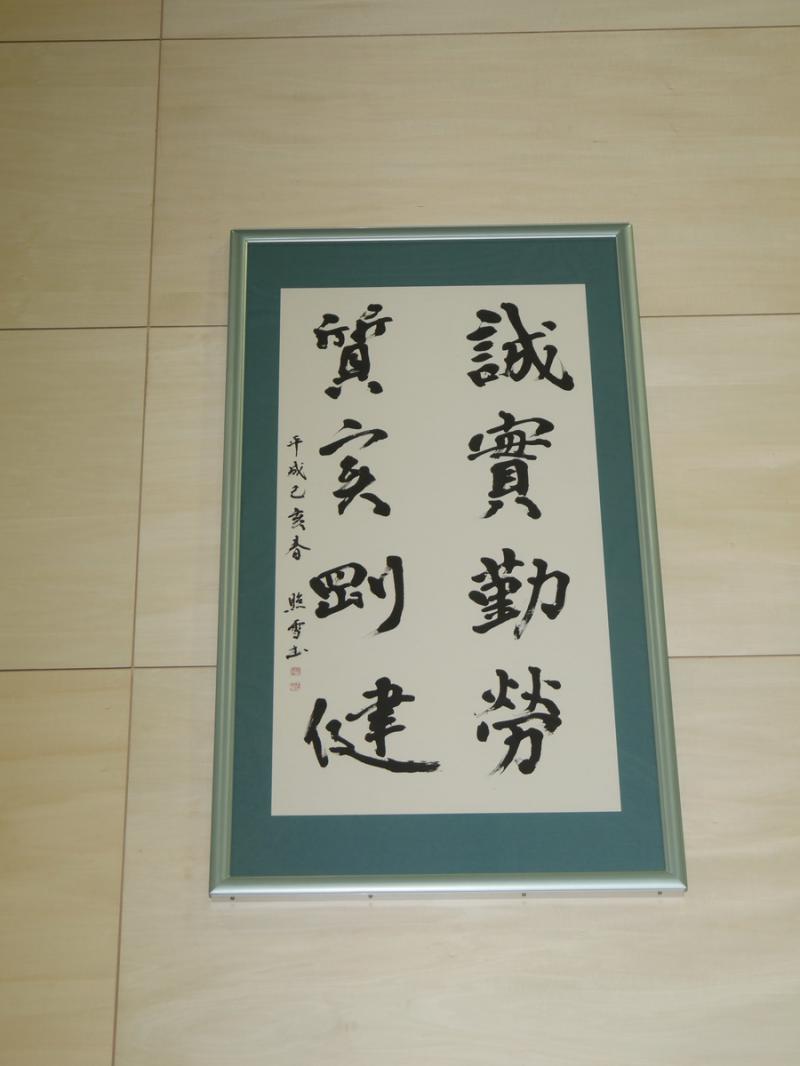 誠實勤勞
質実剛健
平成己亥春 照雪書